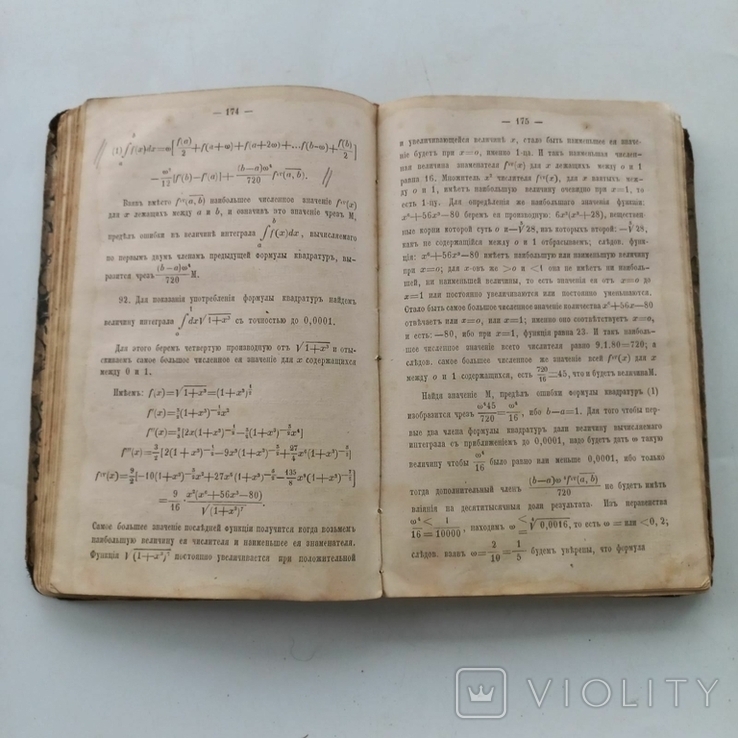 — 174 —
(1) ∫f(x)dx=ω[f(a)/2+f(a+ω)+f(a+2ω)+...f(b-ω)+f(b)/2]
−ω²/12[f'(b)−f'(a)]+(b−a)ω⁴/720 fᶦᵛ(a, b).
Взявъ вмѣсто fᶦᵛ(a, b) наибольшее численное значеніе fᶦᵛ(x)
для x лежащихъ между a и b, и означивъ это значеніе чрезъ M,
предѣлъ ошибки въ величинѣ интеграла ∫f(x)dx, вычисляемаго
по первымъ двумъ членамъ предыдущей формулы квадратуръ, вы-
разится чрезъ (b−a)ω⁴/720 M.
92. Для показанія употребленія формулы квадратуръ найдемъ
величину интеграла ∫dx√1+x³ съ точностью до 0,0001.
Для этого беремъ четвертую производную отъ √1+x³ и оты-
скиваемъ самое большое численное ея значеніе для x содержащихся
между 0 и 1.
Имѣемъ: f(x)=√1+x³=(1+x³)
Самое большое значеніе послѣдней функціи получится когда возьмемъ
наибольшую величину ея числителя и наименьшее ея знаменателя.
Функція √(1+x³)⁷ постоянно увеличивается при положительной
— 175 —
и увеличивающейся величинѣ x, стало быть наименьшее ея значе-
ніе будетъ при x=o, именно 1-ца. И такъ наименьшая числен-
ная величина знаменателя fᶦᵛ(x) для x лежащихъ между o и 1
равна 16. Множитель x² числителя fᶦᵛ(x), для x взятыхъ меж-
ду o и 1, имѣетъ наибольшую величину очевидно при x=1, то
есть 1-цу. Для опредѣленія же наибольшаго значенія функціи:
x⁶+56x³−80 беремъ ея производную: 6x²(x³+28), веществен-
ные корни которой суть o и—∛28, изъ которыхъ второй: —∛28,
какъ не содержащійся между o и 1 отбрасываемъ; слѣдов. функ-
ція: x⁶+56x³−80 имѣетъ наибольшую или наименьшую величину
при x=o; для x-овъ же >o и <1 она не имѣетъ ни наиболь-
шей, ни наименьшей величины, то есть значенія ея отъ x=o до
x=1 или постоянно увеличиваются или постоянно уменьшаются.
Стало быть самое большое численное значеніе количества x⁶+56x−80
отвѣчаетъ или x=o, или x=1; именно оно соотвѣтствуетъ x=o,
и есть: —80, ибо при x=1, функція равна 23. И такъ наиболь-
шее численное значеніе всего числителя равно 9.1.80=720; а
слѣдов. самое большое численное же значеніе всей fᶦᵛ(x) для x
между o и 1 содержащихся, есть 720/16=45, что и будетъ величина M.
Найдя значеніе M, предѣлъ ошибки формулы квадратуръ (1)
изобразится чрезъ ω⁴45/720=ω⁴/16, ибо b−a=1. Для того чтобы пер-
вые два члена формулы квадратуръ дали величину вычисляемаго
интеграла съ приближеніемъ до 0,0001, надо будетъ дать ω такую
величину чтобы ω⁴/16 было равно или меньше 0,0001, ибо только
тогда дополнительный членъ (b−a)ω⁴fᶦᵛ(a, b)/720 не будетъ имѣть
вліянія на десятитысячныя доли результата. Изъ неравенства
ω⁴/16<=1/10000, находимъ ω<=∜0,0016, то есть ω = или <0,2;
слѣдов. взявъ ω=2/10=1/5 будемъ увѣрены, что формула
VIOLITY